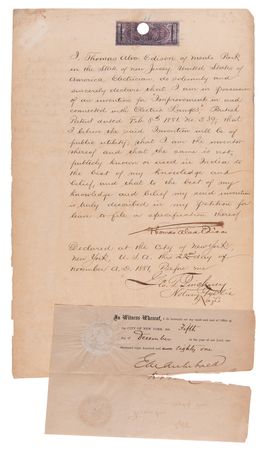 I, Thomas Alva Edison of Menlo Park
in the State of New Jersey, United States of
America Electrician, do solemnly and
sincerely declare that I am in possession
of an invention for Improvements in and
connected with Electric Lamps, British
Patent dated Feb 8th 1881. No 539, that
I believe the said Invention will be of
public utility, that I am the inventor
thereof and that the same is not
publicly known or used in India to
the best of my knowledge and
belief, and that to the best of my
knowledge and belief my said invention
is truly described in my petition for
leave to file a specification thereof
Thomas Alva Edison
Declared at the City of New York
New York, U.S.A. this 22nd day of
November A.D. 1881, Before me
Notary Public
In Witness Whereof, I do hereunto set my hand and seal of office at
the CITY OF NEW YORK, this Fifth
day of December in the year of our Lord, one
thousand eight hundred and eighty one
E M Archibald